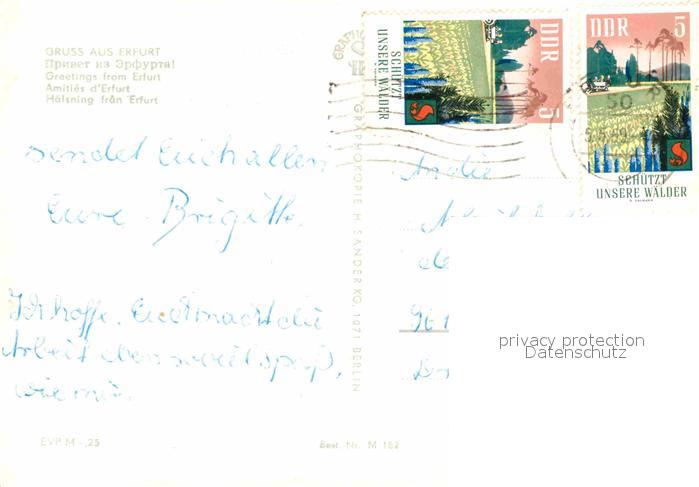 GRUSS AUS ERFURT
Привет из Эрфурта!
Greetings from Erfurt
Amitiés d'Erfurt
Hälsning från Erfurt
sendet Euch allen
Eure Brigitte.
Ich hoffe, Euch macht die
Arbeit eben soviel Spaß,
wie mir.
EVP M -,25
Best.-Nr. M 182
GRAPHOKOPIE H. SANDER KG, 1071 BERLIN
DDR 5
SCHÜTZT
UNSERE WÄLDER
DDR 5
SCHÜTZT
UNSERE WÄLDER
50
An die
privacy protection
Datenschutz